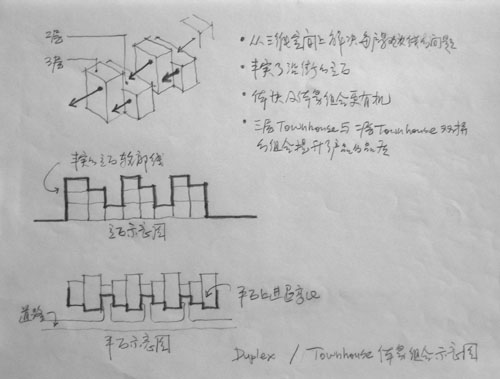 2层
3层
• 从三维空间上解决每户景观朝向问题
• 丰富了沿街立面
• 体块及体量组合更有机
• 三层Townhouse与二层Townhouse双拼
的组合提升了产品品质
丰富的立面轮廓线
立面示意图
平面上进退变化
道路
平面示意图
Duplex / Townhouse 体量组合示意图